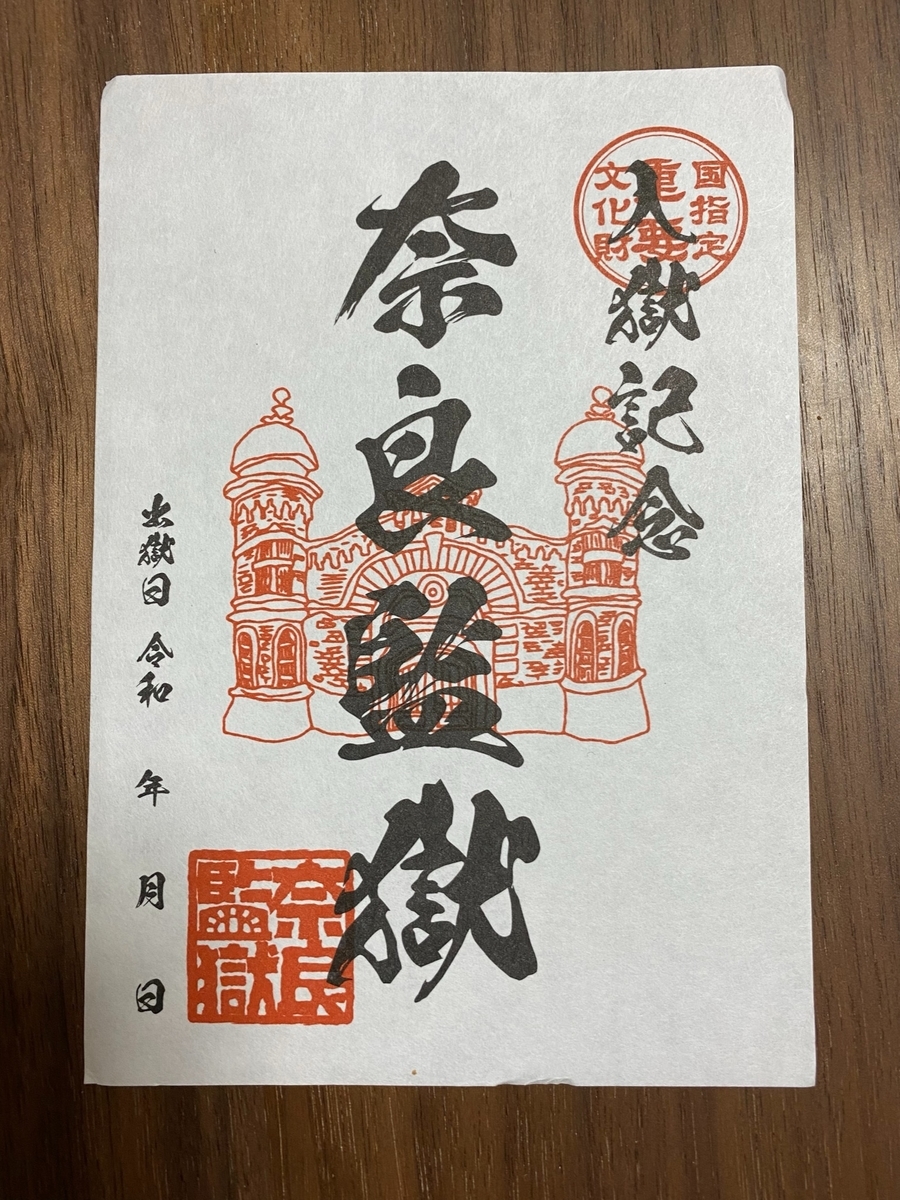 国指定
重要
文化財
入獄記念
奈良監獄
奈良
監獄
出獄日 令和 年 月 日